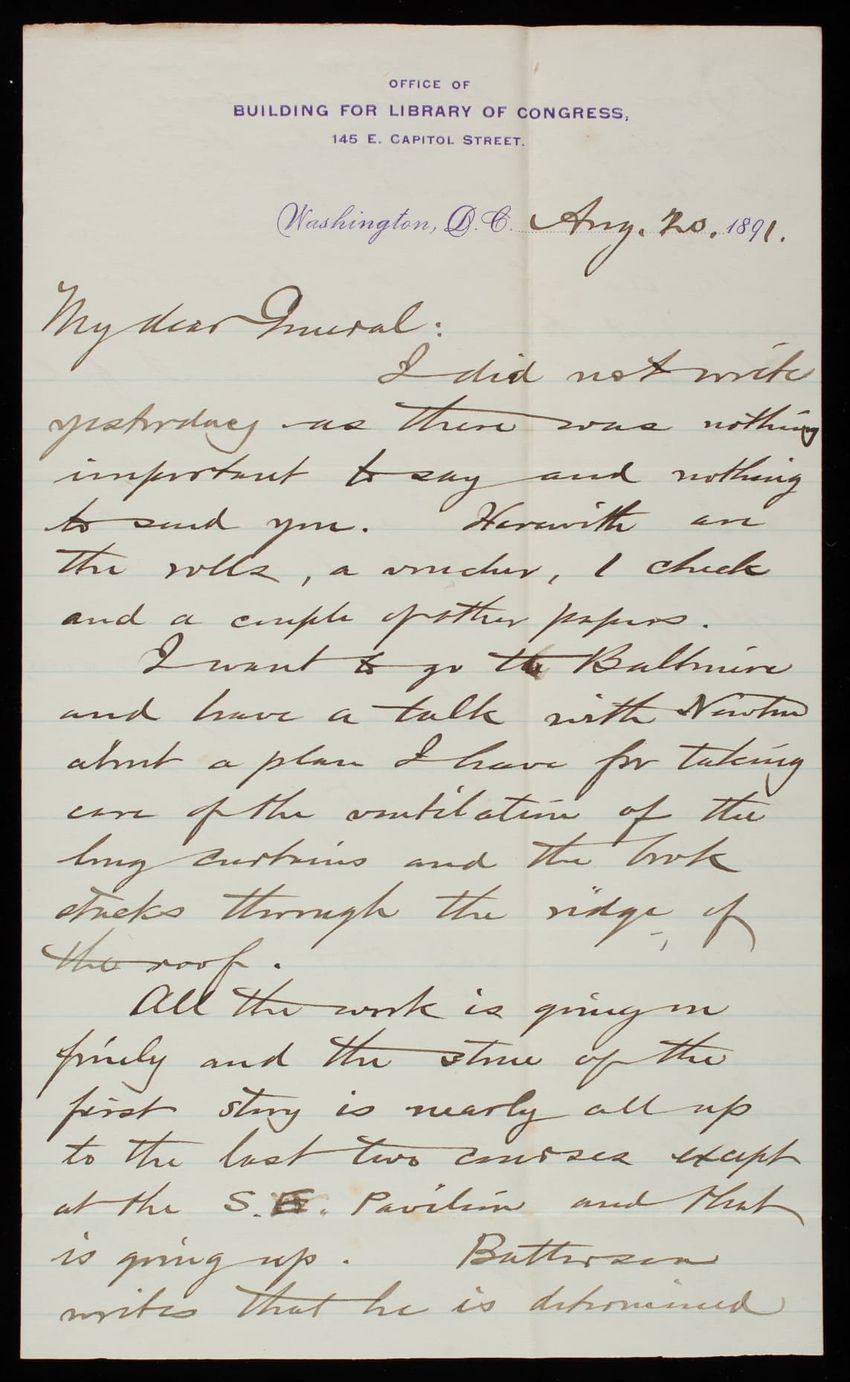 OFFICE OF
BUILDING FOR LIBRARY OF CONGRESS,
145 E. CAPITOL STREET.
Washington, D.C. Aug. 20. 1891.
My dear General:
I did not write
yesterday as there was nothing
important to say and nothing
to send you. Herewith are
the rolls, a voucher, 1 check
and a couple of other papers.
I want to go to Baltimore
and have a talk with Newton
about a plan I have for taking
care of the ventilation of the
long curtains and the book
stacks through the ridge, of
the roof.
All the work is going on
finely and the stone of the
first story is nearly all up
to the last two courses except
at the S.E. Pavilion and that
is going up. Batterson
writes that he is determined